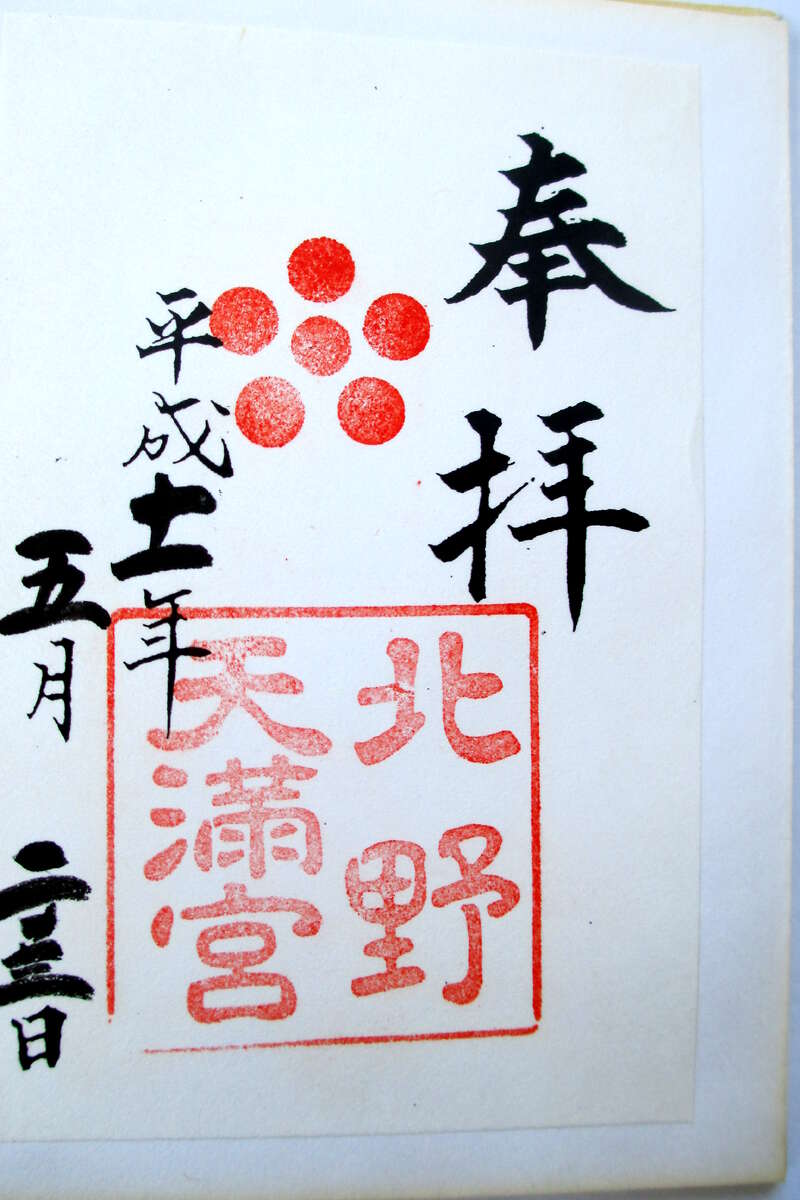 奉拝
北野
天満宮
平成十一年
五月二十三日